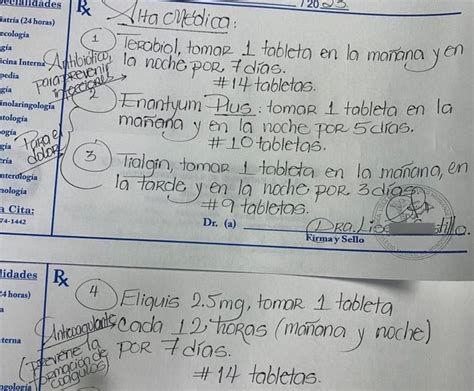 ecialidades
Rx
/20 23
iatría (24 horas)
Alta Médica:
ecología
gía
1 Terabiol, tomar 1 tableta en la mañana y en
Antibiótico, para prevenir infecciones
la noche por 7 días.
#14 tabletas.
icina Interna
pedia
gía
inolaringología
2 Enantyum Plus: tomar 1 tableta en la
atología
mañana y en la noche por 5 días.
ogía
Para el dolor
#10 tabletas.
gía
3 Tialgin, tomar 1 tableta en la mañana, en
ría
la tarde y en la noche por 3 días
nterología
#9 tabletas.
nología
a Cita:
74-1442
Dr. (a)
Dra.
Firma y Sello
lidades
Rx
24 horas)
4 Eliquis 2.5mg, tomar 1 tableta
Anticoagulante
cada 12 horas (mañana y noche)
terna
(previene la formación de coágulos)
por 7 días.
#14 tabletas.
ngología